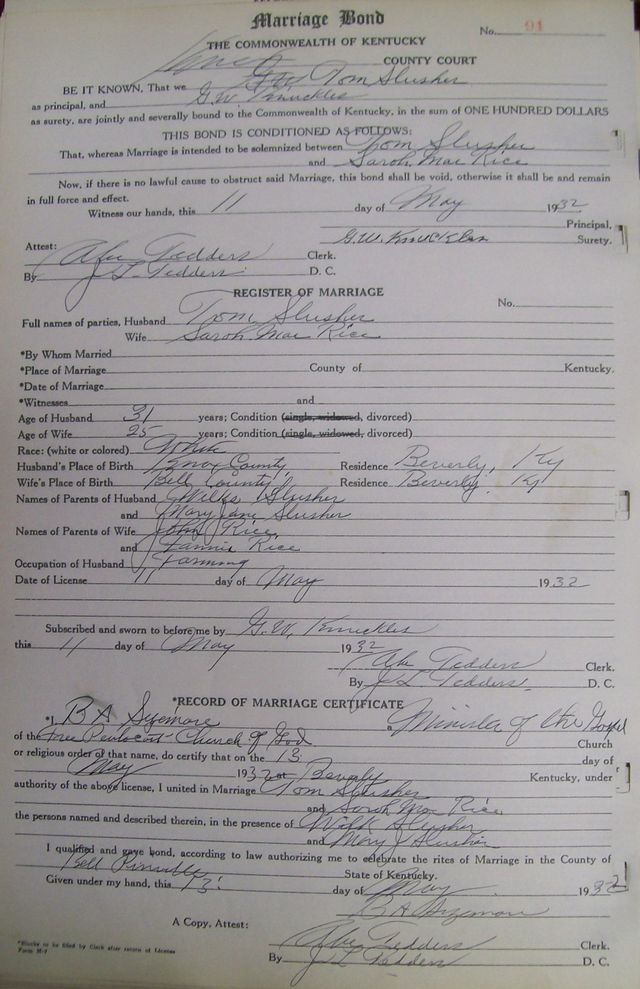 Marriage Bond
No. 91
THE COMMONWEALTH OF KENTUCKY
Knox COUNTY COURT
BE IT KNOWN, That we Tom Slusher
as principal, and G.W. Knuckles
as surety, are jointly and severally bound to the Commonwealth of Kentucky, in the sum of ONE HUNDRED DOLLARS
THIS BOND IS CONDITIONED AS FOLLOWS:
That, whereas Marriage is intended to be solemnized between Tom Slusher
and Sarah Mae Rice
Now, if there is no lawful cause to obstruct said Marriage, this bond shall be void, otherwise it shall be and remain
in full force and effect.
Witness our hands, this 11 day of May 1932
Principal,
G.W. Knuckles Surety.
Attest:
Abe Tedders Clerk.
By J L Tedders D. C.
REGISTER OF MARRIAGE
No.
Full names of parties, Husband Tom Slusher
Wife Sarah Mae Rice
*By Whom Married
*Place of Marriage County of Kentucky.
*Date of Marriage
*Witnesses and
Age of Husband 31 years; Condition (single, widowed, divorced)
Age of Wife 25 years; Condition (single, widowed, divorced)
Race: (white or colored) White
Husband's Place of Birth Knox County Residence Beverly, Ky
Wife's Place of Birth Bell County Residence Beverly, Ky
Names of Parents of Husband Wilks Slusher
and Mary Jane Slusher
Names of Parents of Wife John Rice,
and Fannie Rice
Occupation of Husband Farming
Date of License 11 day of May 1932
Subscribed and sworn to before me by G.W. Knuckles
this 11 day of May 1932
Abe Tedders Clerk.
By J L Tedders. D. C.
*RECORD OF MARRIAGE CERTIFICATE
*I, B A Sizemore a Minister of the Gospel
of the Free Pentecost Church of God Church
or religious order of that name, do certify that on the 13 day of
May 1932 at Beverly Kentucky, under
authority of the above license, I united in Marriage Tom Slusher
and Sarah Mae Rice
the persons named and described therein, in the presence of Wilk Slusher
and Mary J Slusher
I qualified and gave bond, according to law authorizing me to celebrate the rites of Marriage in the County of
Bell Pineville State of Kentucky.
Given under my hand, this 13 day of May 1932
B A Sizemore
A Copy, Attest:
Abe Tedders Clerk.
By J L Tedders D. C.
*Blanks to be filled by Clerk after return of License
Form M-7